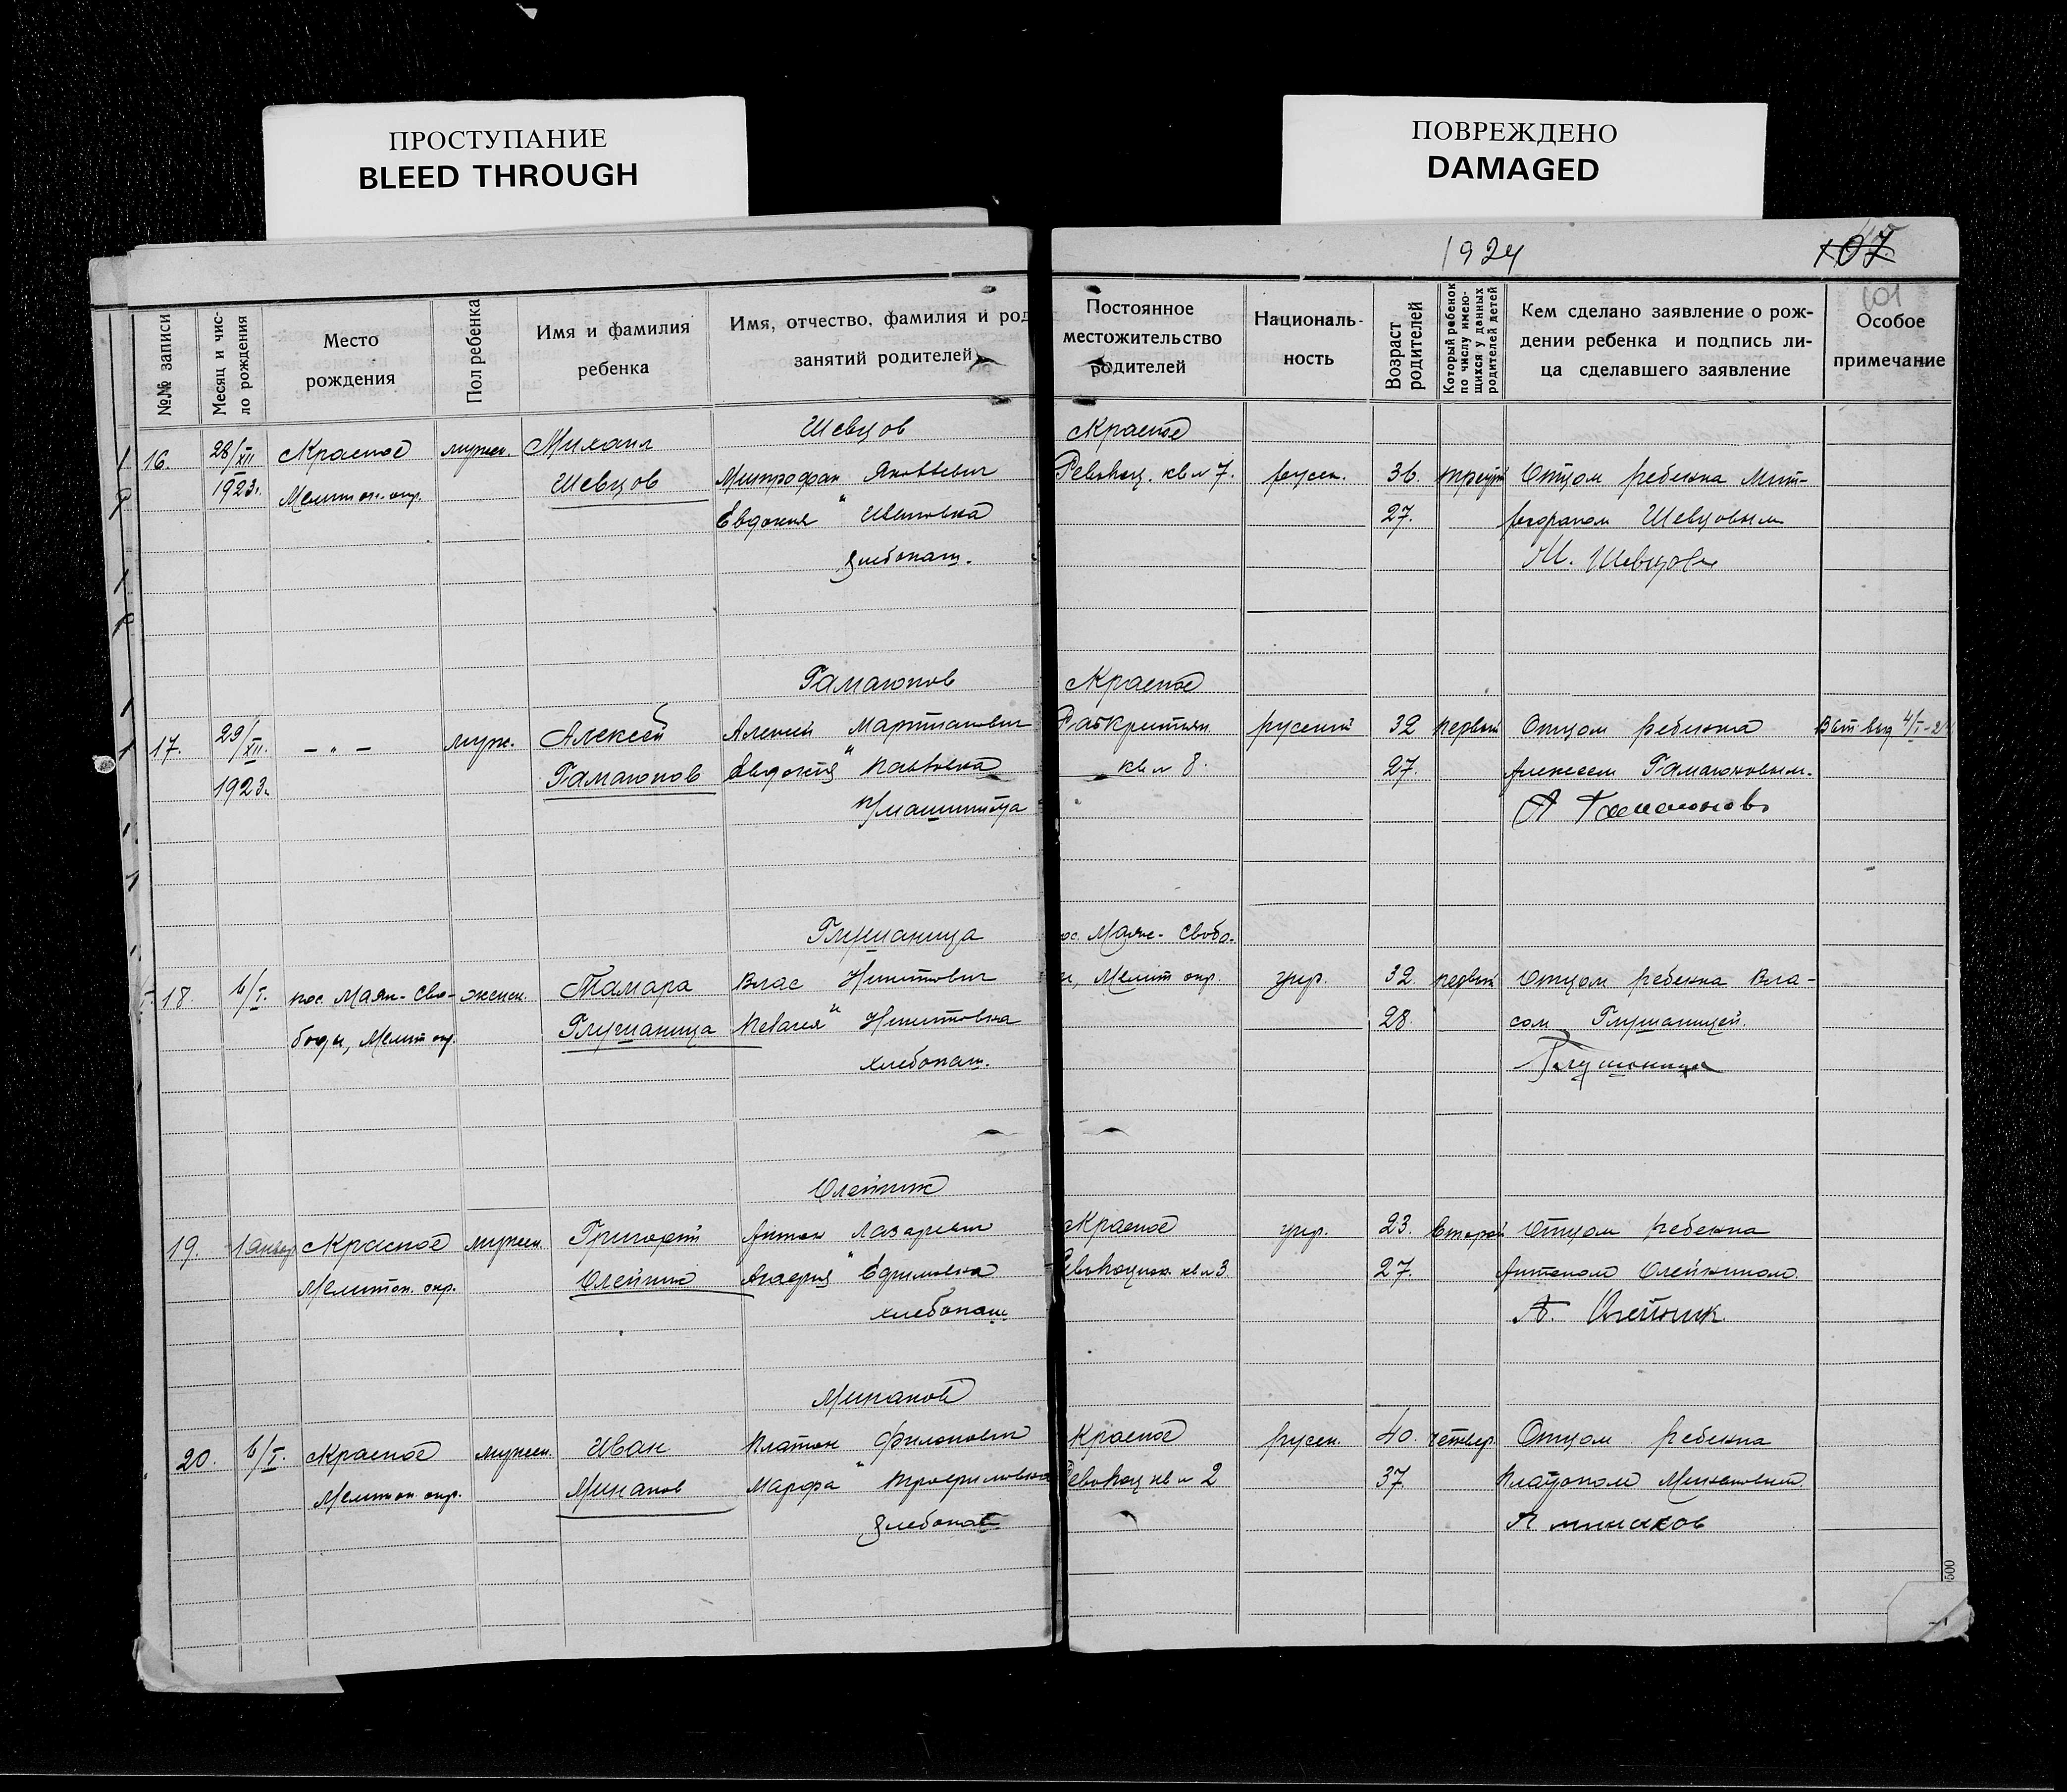 ПРОСТУПАНИЕ
BLEED THROUGH
ПОВРЕЖДЕНО
DAMAGED
1924
107
101
№№ записи
Месяц и число рождения
Место
рождения
Пол ребенка
Имя и фамилия
ребенка
Имя, отчество, фамилия и род
занятий родителей
Постоянное
местожительство
родителей
Националь-
ность
Возраст
родителей
Который ребенок
по числу имею-
щихся у данных
родителей детей
Кем сделано заявление о рож-
дении ребенка и подпись ли-
ца сделавшего заявление
Особое
примечание
Шевцов
с Красное
16. 28/XII с Красное мужск. Михаил
1923г. Мелитоп. окр. Шевцов Митрофан Яковлевич кв N 7. русск. 36. Отцом ребенка Мит-
Евдокия " Ивановна 27. рофаном Шевцовым
хлебопаш. М. Шевцов
Гамаюнов
с Красное
17. 29/XII. — " — муж. Алексей Алексей Мартынович русский 32 первый Отцом ребенка 4/I-24
1923г. Гамаюнов Евдокия " Павловна кв N 8. 27. Алексеем Гамаюновым.
А Гамаюновъ
Глушаница
ос. Маяк- Свобо-
18. 6/I. пос. Маяк-Сво- женск. Тамара Влас Никитович ы, Мелит окр. укр. 32. первый Отцом ребенка Вла-
боды, Мелит окр. Глушаница Пелагея " Никитовна 28. сом Глушаницей.
хлебопаш. Глушаница
Олейник
19. 1 январ с Красное мужск. Григорий Антон Лазаревич с Красное укр. 23. второй Отцом ребенка
Мелитоп. окр. Олейник " Ефимовна кв N 3 27. Антоном Олейником.
хлебопаш А. Олейник.
Минаков
20. 6/I. с Красное мужск. Иван Платон Филипович с Красное русск. 40. четвер. Отцом ребенка
Мелитоп. окр. Минаков Марфа " Трофимовна кв N 2 37. Платоном Минаковым.
хлебопаш П минаков
500